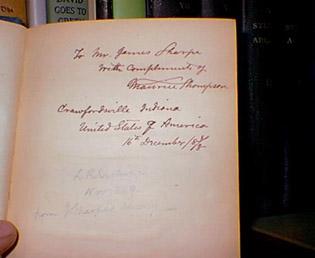 DAVID
GOES TO
To Mr. James Sharpe
With Compliments of
Maurice Thompson
Crawfordsville Indiana
United States of America
16th December
from